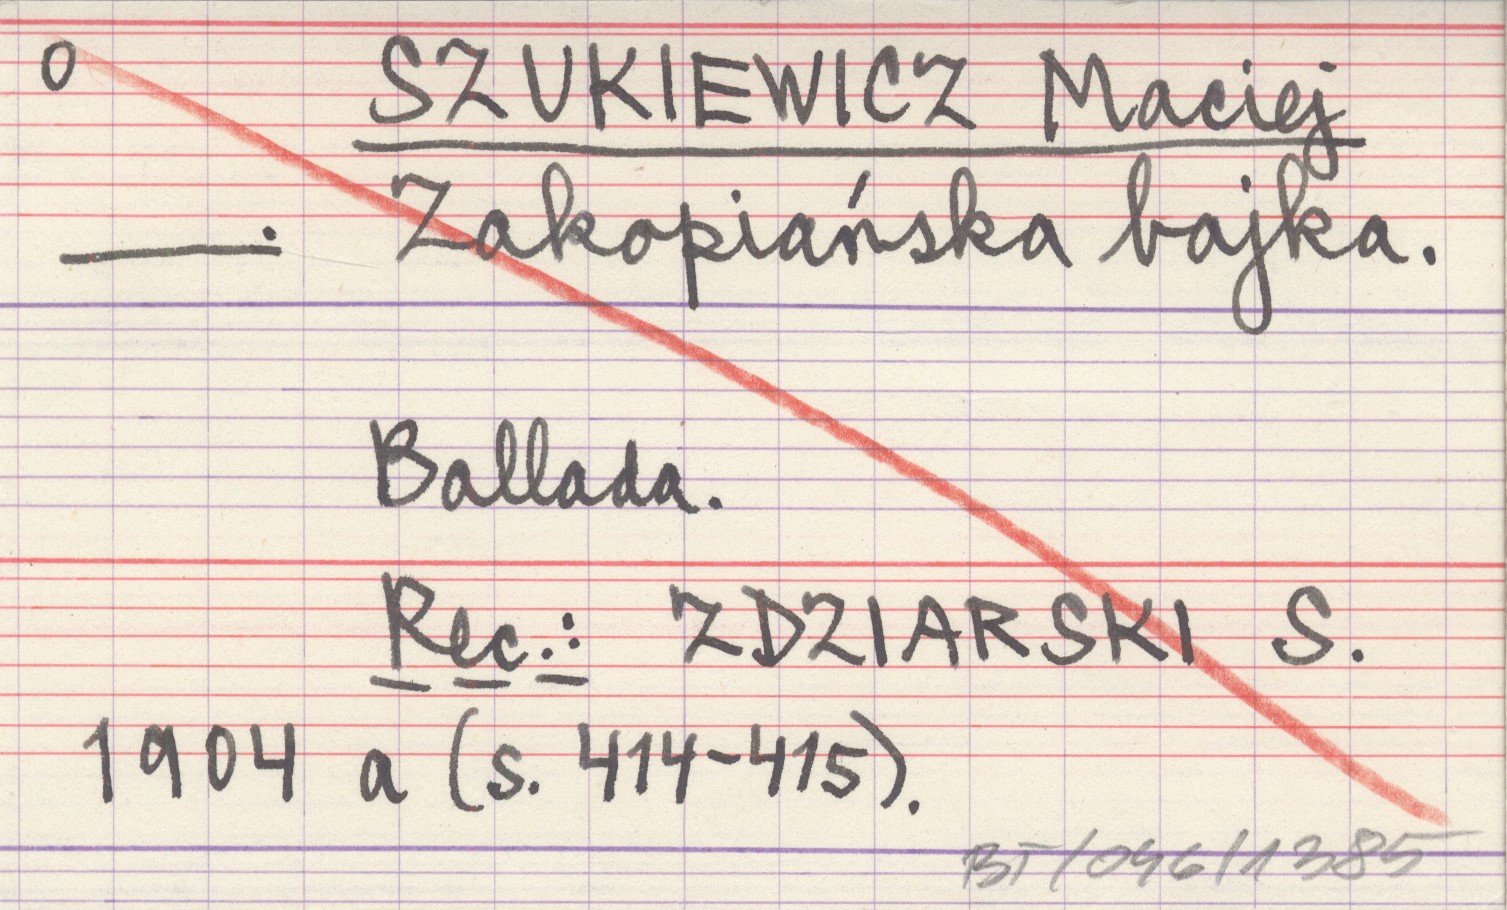 0 SZUKIEWICZ Maciej
_____. Zakopiańska bajka.
Ballada.
Rec.: ZDZIARSKI S.
1904 a (s. 414-415).
BT/046/1385